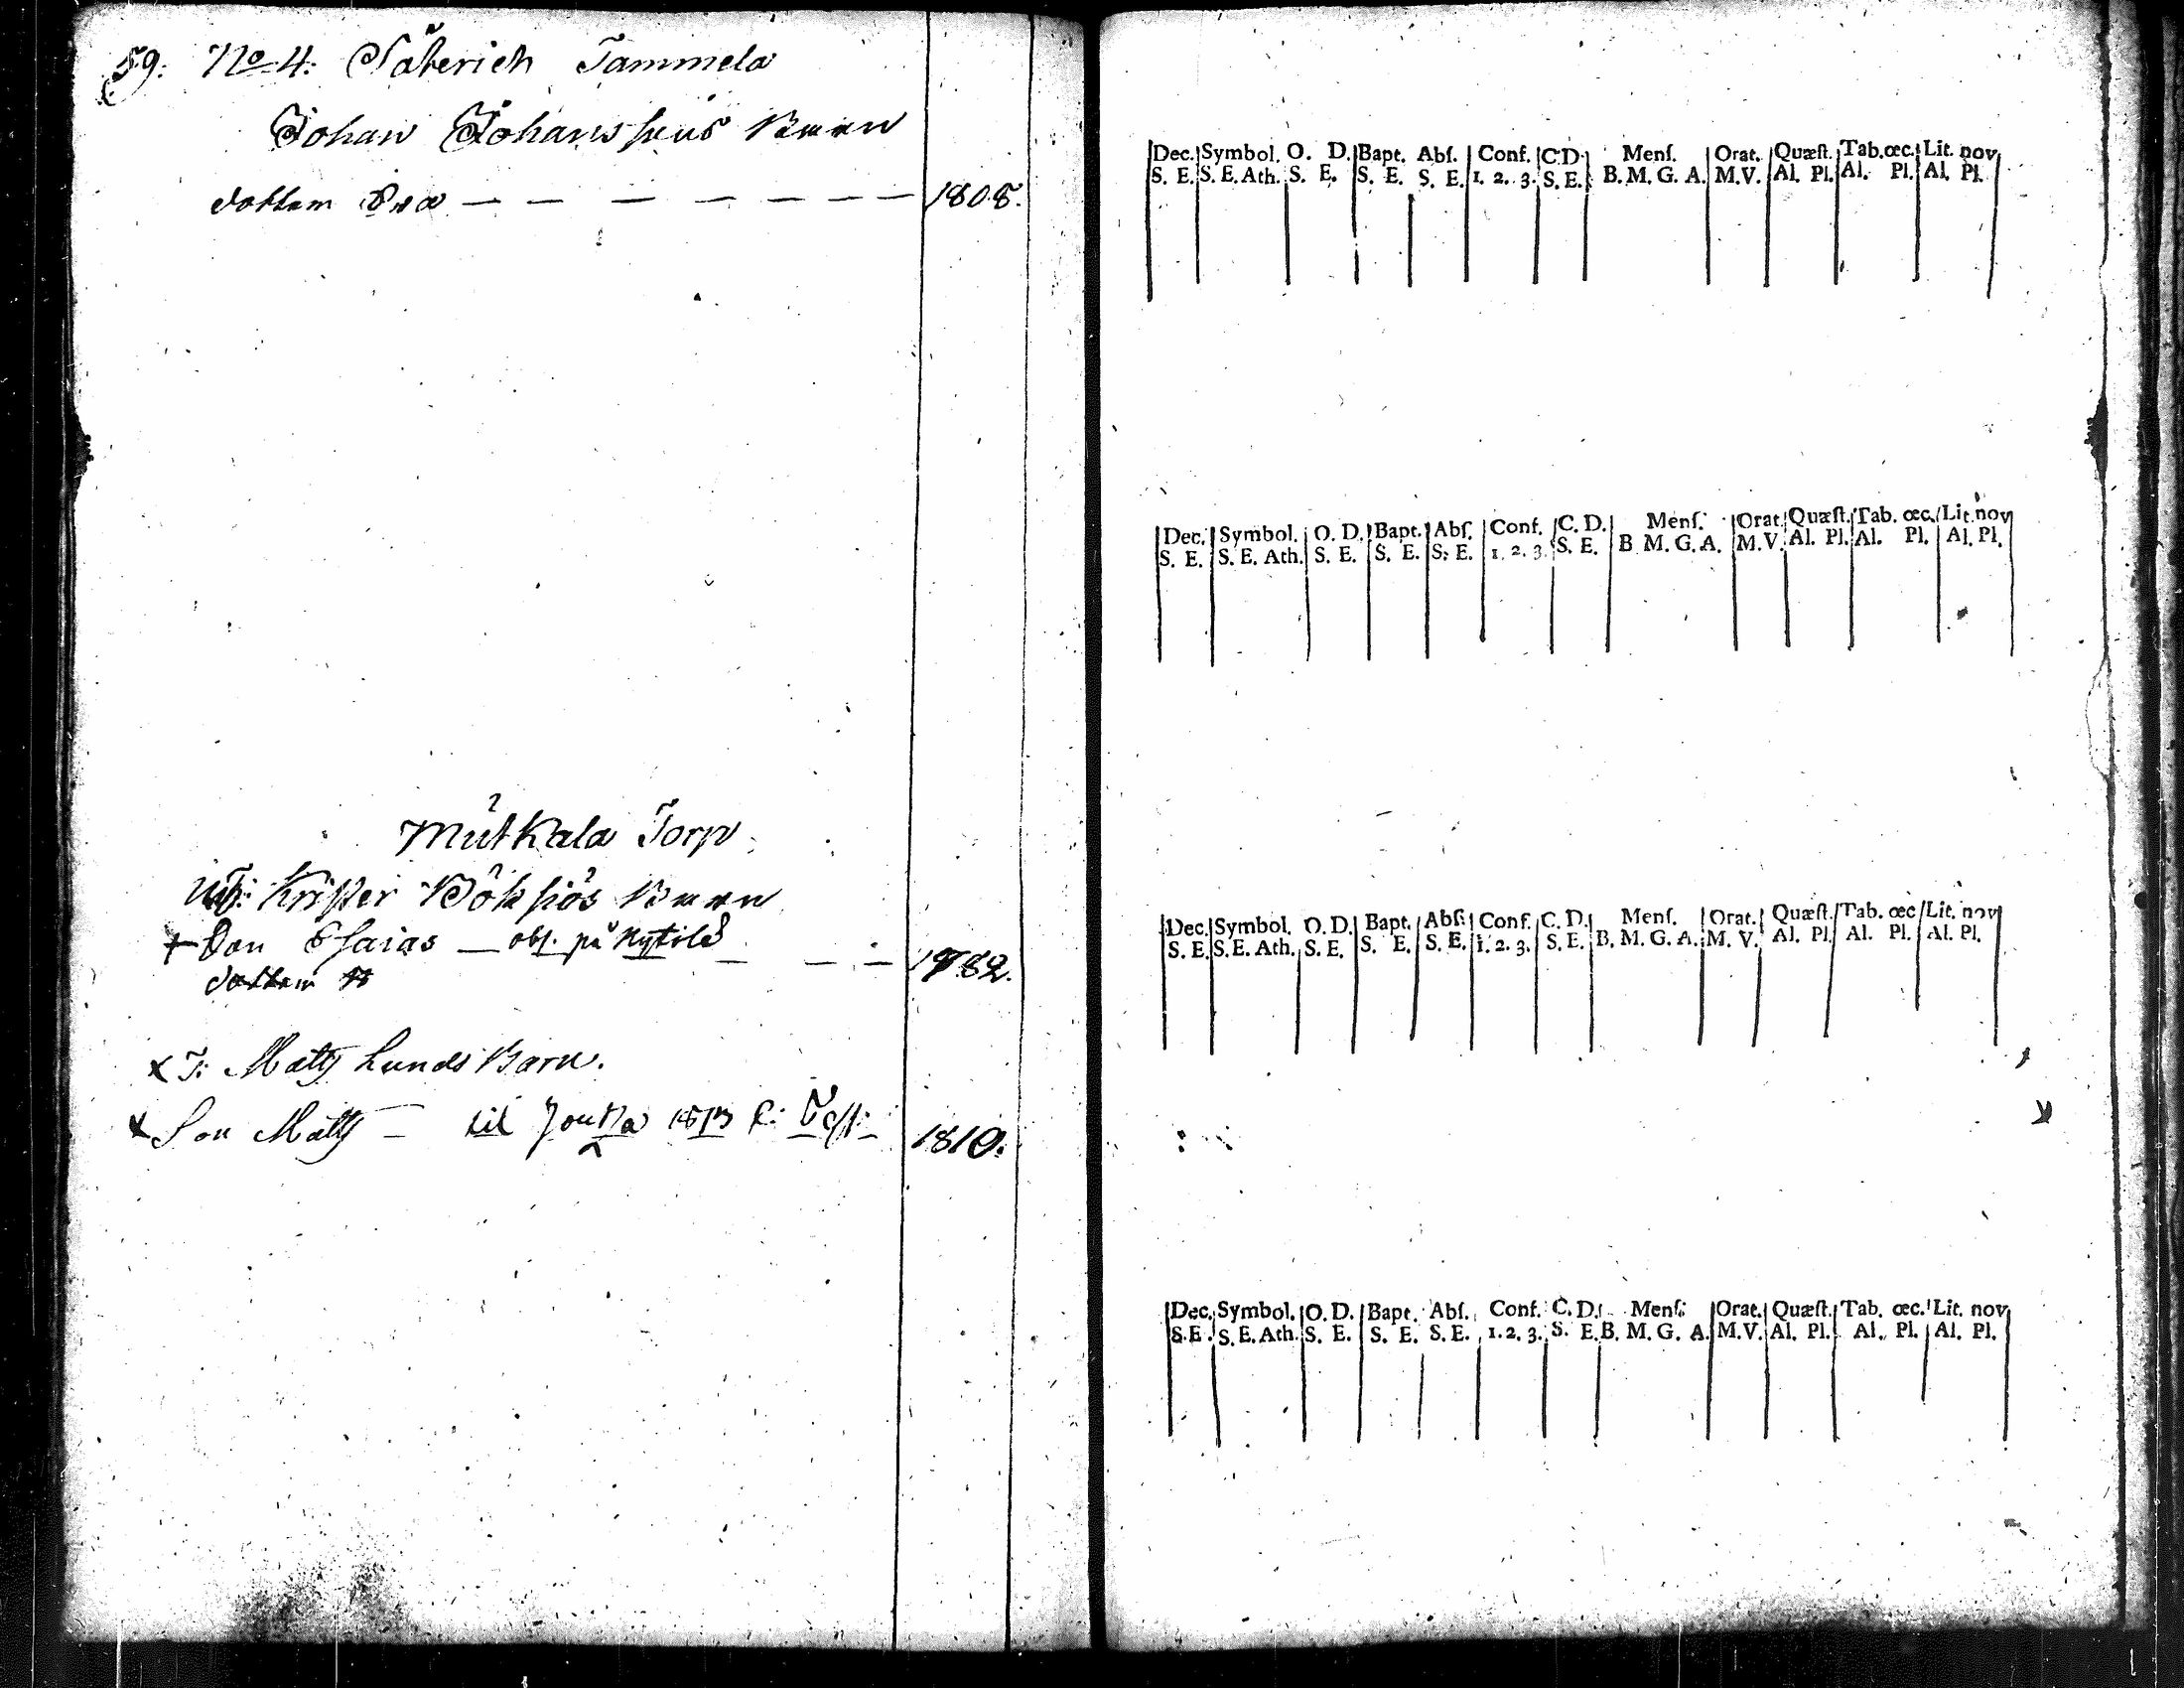 59: No 4: Säterich Tammela
Johan Johanssons Barn
dottern Eva — — — — — — — 1805.
Mutkala Torp
Krister Böksiös Barn
+ Son Esaias — obs. på Nykile — — — 1782.
dottern
x T: Matts Lunds Barn.
x Son Matts — til Joukka 1813 1810.
Dec. Symbol. O. D. Bapt. Abſ. Conf. C.D. Menſ. Orat. Quæſt. Tab. œc. Lit. nov
S. E. S. E. Ath. S. E. S. E. S. E. 1. 2. 3. S. E. B. M. G. A. M.V. Al. Pl. Al. Pl. Al. Pl.
Dec. Symbol. O. D. Bapt. Abſ. Conf. C. D. Menſ. Orat. Quæſt. Tab. œc. Lit. nov
S. E. S. E. Ath. S. E. S. E. S. E. 1. 2. 3. S. E. B M. G. A. M.V. Al. Pl. Al. Pl. Al. Pl.
Dec. Symbol. O. D. Bapt. Abſ. Conf. C. D. Menſ. Orat. Quæſt. Tab. œc Lit. nov
S. E. S. E. Ath. S. E. S. E. S. E. 1. 2. 3. S. E. B. M. G. A. M. V. Al. Pl. Al. Pl. Al. Pl.
Dec. Symbol. O. D. Bapt. Abſ. Conf. C. D. Menſ. Orat. Quæſt. Tab. œc. Lit. nov
S. E. S. E. Ath. S. E. S. E. S. E. 1. 2. 3. S. E. B. M. G. A. M.V. Al. Pl. Al. Pl. Al. Pl.